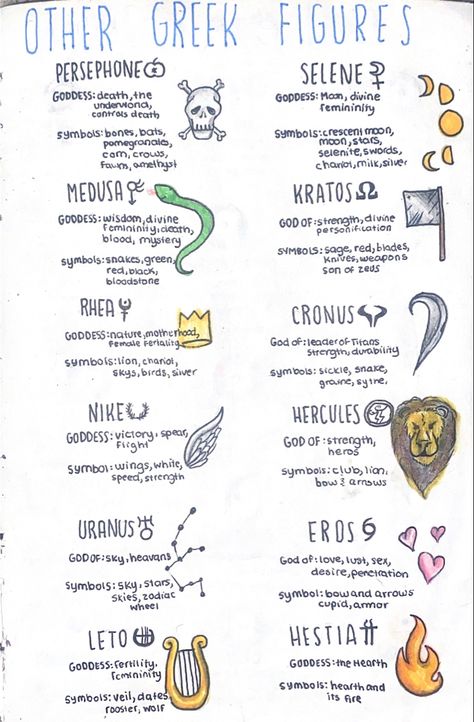 OTHER GREEK FIGURES
PERSEPHONE
GODDESS: death, the
underworld,
controls death
symbols: bones, bats,
pomegranates,
corn, crows,
fauns, amethyst
MEDUSA
GODDESS: wisdom, divine
femininity, death,
blood, mystery
symbols: snakes, green,
red, black,
bloodstone
RHEA
GODDESS: nature, motherhood,
female fertality
symbols: lion, chariot,
skys, birds, silver
NIKE
GODDESS: victory, spear,
flight
symbol: wings, white,
speed, strength
URANUS
GOD OF: sky, heavans
symbols: sky, stars,
skies, zodiac
wheel
LETO
GODDESS: fertility,
femininity
symbols: veil, dates,
rooster, wolf
SELENE
GODDESS: Moon, divine
femininity
symbols: crescent moon,
moon, stars,
selenite, swords,
chariot, milk, silver
KRATOS
GOD OF: strength, divine
personification
SYMBOLS: sage, red, blades,
knives, weapons
son of zeus
CRONUS
God of: leader of Titans
strength, durability
symbols: sickle, snake,
graine, sythe,
HERCULES
GOD OF: strength,
heros
symbols: club, lion,
bow & arrows
EROS
God of: love, lust, sex,
desire, penetration
symbol: bow and arrows
cupid, armor
HESTIA
GODDESS: the Hearth
symbols: hearth and
its fire